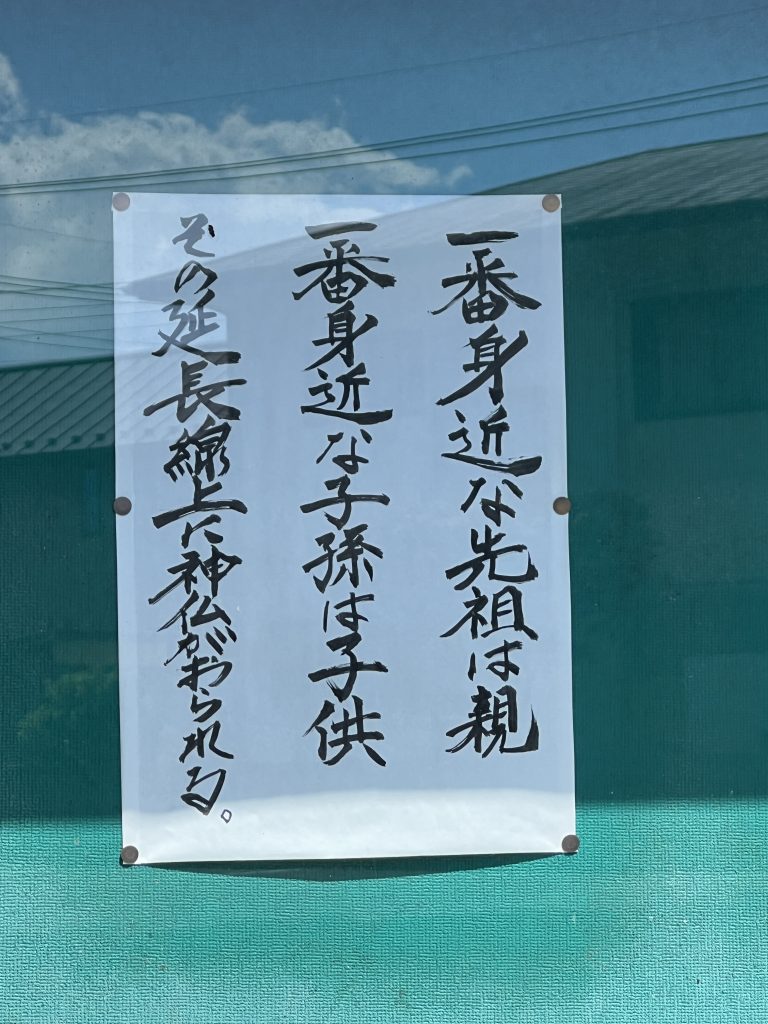 一番身近な先祖は親
一番身近な子孫は子供
その延長線上に神仏がおられる。